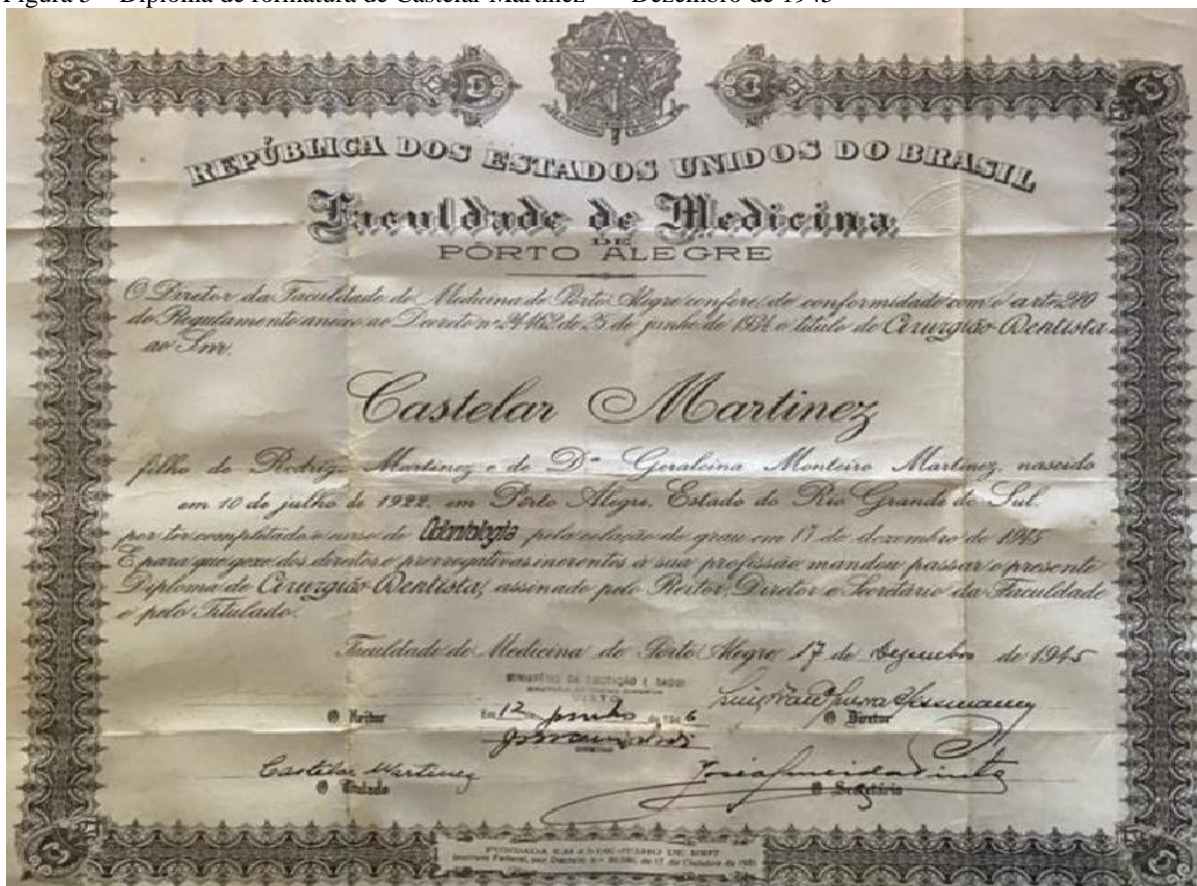 Figura 3 – Diploma de formatura de Castelar Martinez – Dezembro de 1945
REPÚBLICA DOS ESTADOS UNIDOS DO BRASIL
Faculdade de Medicina
DE
PÔRTO ALEGRE
O Diretor da Faculdade de Medicina de Pôrto Alegre confere, de conformidade com o art. 280
do Regulamento anexo ao Decreto nº 24.462 de 25 de junho de 1934 o título de Cirurgião-Dentista
ao Snr.
Castelar Martinez
filho de Rodrigo Martinez e de Dª Geralcina Monteiro Martinez, nascido
em 10 de julho de 1922, em Pôrto Alegre, Estado do Rio Grande do Sul.
por ter completado o curso de Odontologia pela colação de grau em 17 de dezembro de 1945
E para que goze dos direitos e prerrogativas inerentes à sua profissão mandou passar o presente
Diploma de Cirurgião-Dentista, assinado pelo Reitor, Diretor e Secretário da Faculdade
e pelo Titulado.
Faculdade de Medicina de Pôrto Alegre 17 de dezembro de 1945
MINISTÉRIO DA EDUCAÇÃO E SAÚDE
VISTO
Em 12 junho de 194 6
O Reitor
O Diretor
Castelar Martinez
O Titulado
O Secretário